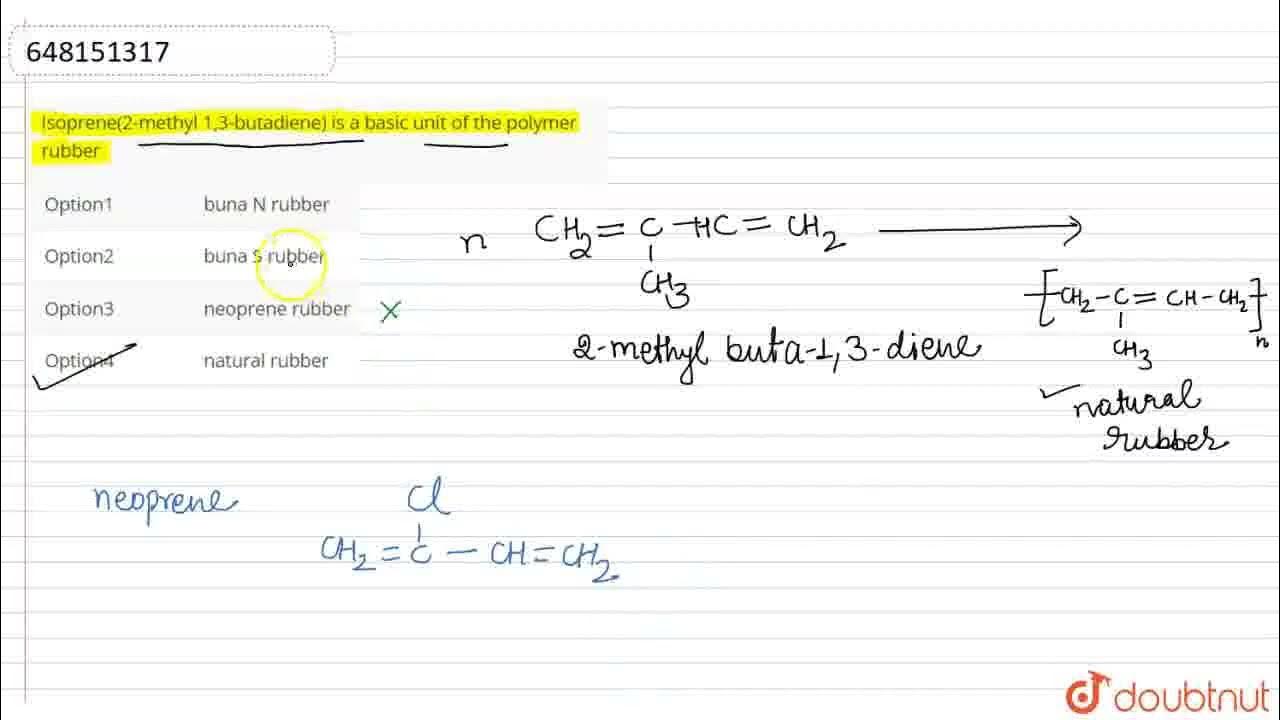 648151317
Isoprene(2-methyl 1,3-butadiene) is a basic unit of the polymer
rubber
Option1 buna N rubber
Option2 buna S rubber
Option3 neoprene rubber X
Option4 natural rubber
n CH2=C-HC=CH2
CH3
2-methyl buta-1,3-diene
[CH2-C=CH-CH2]n
CH3
natural
rubber
neoprene
Cl
CH2=C-CH=CH2
doubtnut